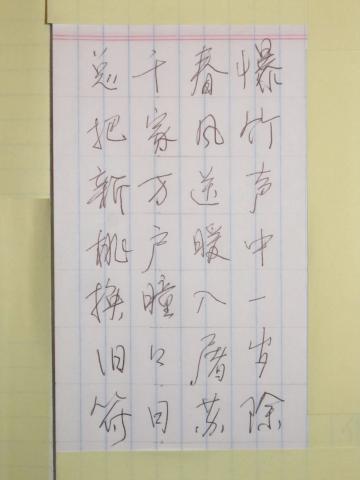 爆竹声中一岁除
春风送暖入屠苏
千家万户瞳〻日
总把新桃换旧符